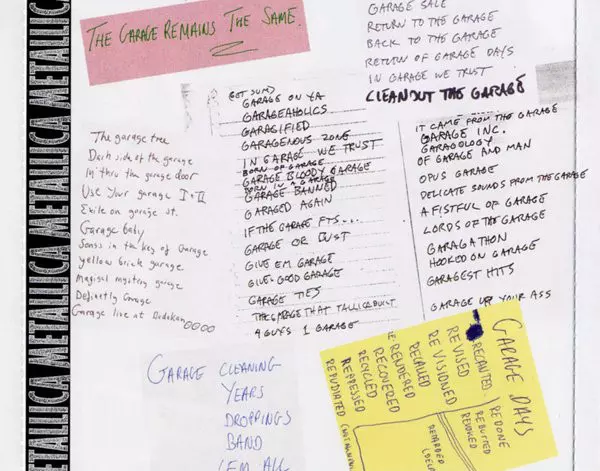 METALLICA METALLICA METALLICA METALLICA
THE GARAGE REMAINS THE SAME.
GARAGE SALE
RETURN TO THE GARAGE
BACK TO THE GARAGE
RETURN OF GARAGE DAYS
IN GARAGE WE TRUST
CLEANOUT THE GARAGE
The garage tree
Dark side of the garage
In thru the garage door
Use Your garage I + II
Exile on garage st.
Garage baby
Songs in the key of Garage
Yellow brick garage
Magical mystery garage
Definitly Garage
Garage live at Budokan
(GET SUM)
GARAGE ON YA
GARAGEAHOLICS
GARAGIFIED
GARAGENOUS ZONE
IN GARAGE WE TRUST
BORN OF GARAGE
GARAGE BLOODY GARAGE
BORN IN A GARAGE
GARAGE BANNED
GARAGED AGAIN
IF THE GARAGE FTS...
GARAGE OR BUST
GIVE EM GARAGE
GIVE GOOD GARAGE
GARAGE TIES
THE GARAGE THAT TALLICA BUILT
4 GUYS 1 GARAGE
IT CAME FROM THE GARAGE
GARAGE INC.
GARAGOLOGY
OF GARAGE AND MAN
OPUS GARAGE
DELICATE SOUNDS FROM THE GARAGE
A FISTFUL OF GARAGE
LORDS OF THE GARAGE
GARAGATHON
HOOKED ON GARAGE
GARAGEST HITS
GARAGE UP YOUR ASS
GARAGE CLEANING
YEARS
DROPPINGS
BAND
'EM ALL
GARAGE DAYS
REDONE
REBUTTED
REVOKED
RECANTED
REVISED
RE VISIONED
RECALLED
RE RENDERED
RECOVERED
RECYCLED
REPRESSED
REPUDIATED
RETARDED